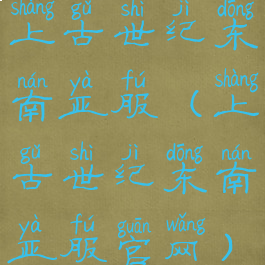 shàng gǔ shì jì dōng
上古世纪东
nán yà fú shàng
南亚服（上
gǔ shì jì dōng nán
古世纪东南
yà fú guān wǎng
亚服官网）